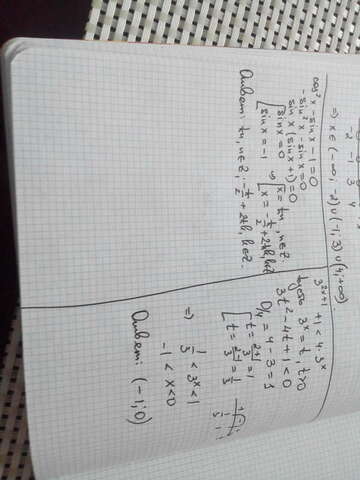 2 -1 3 4
=> x ∈ (-∞; -2) ∪ (-1; 3) ∪ (4; +∞).
cos²x - sin x - 1 = 0
-sin²x - sin x = 0
sin x (sin x + 1) = 0
[ sin x = 0
[ sin x = -1
=> [ x = πn, n∈Z,
[ x = -π/2 + 2πk, k∈Z.
Ответ: πn, n∈Z; -π/2 + 2πk, k∈Z.
3^(2x+1) + 1 < 4·3^x
Пусть 3^x = t, t>0
3t² - 4t + 1 < 0
D/4 = 4 - 3 = 1
[ t = (2+1)/3 = 1
[ t = (2-1)/3 = 1/3
=> 1/3 < 3^x < 1
-1 < x < 0
Ответ: (-1; 0)